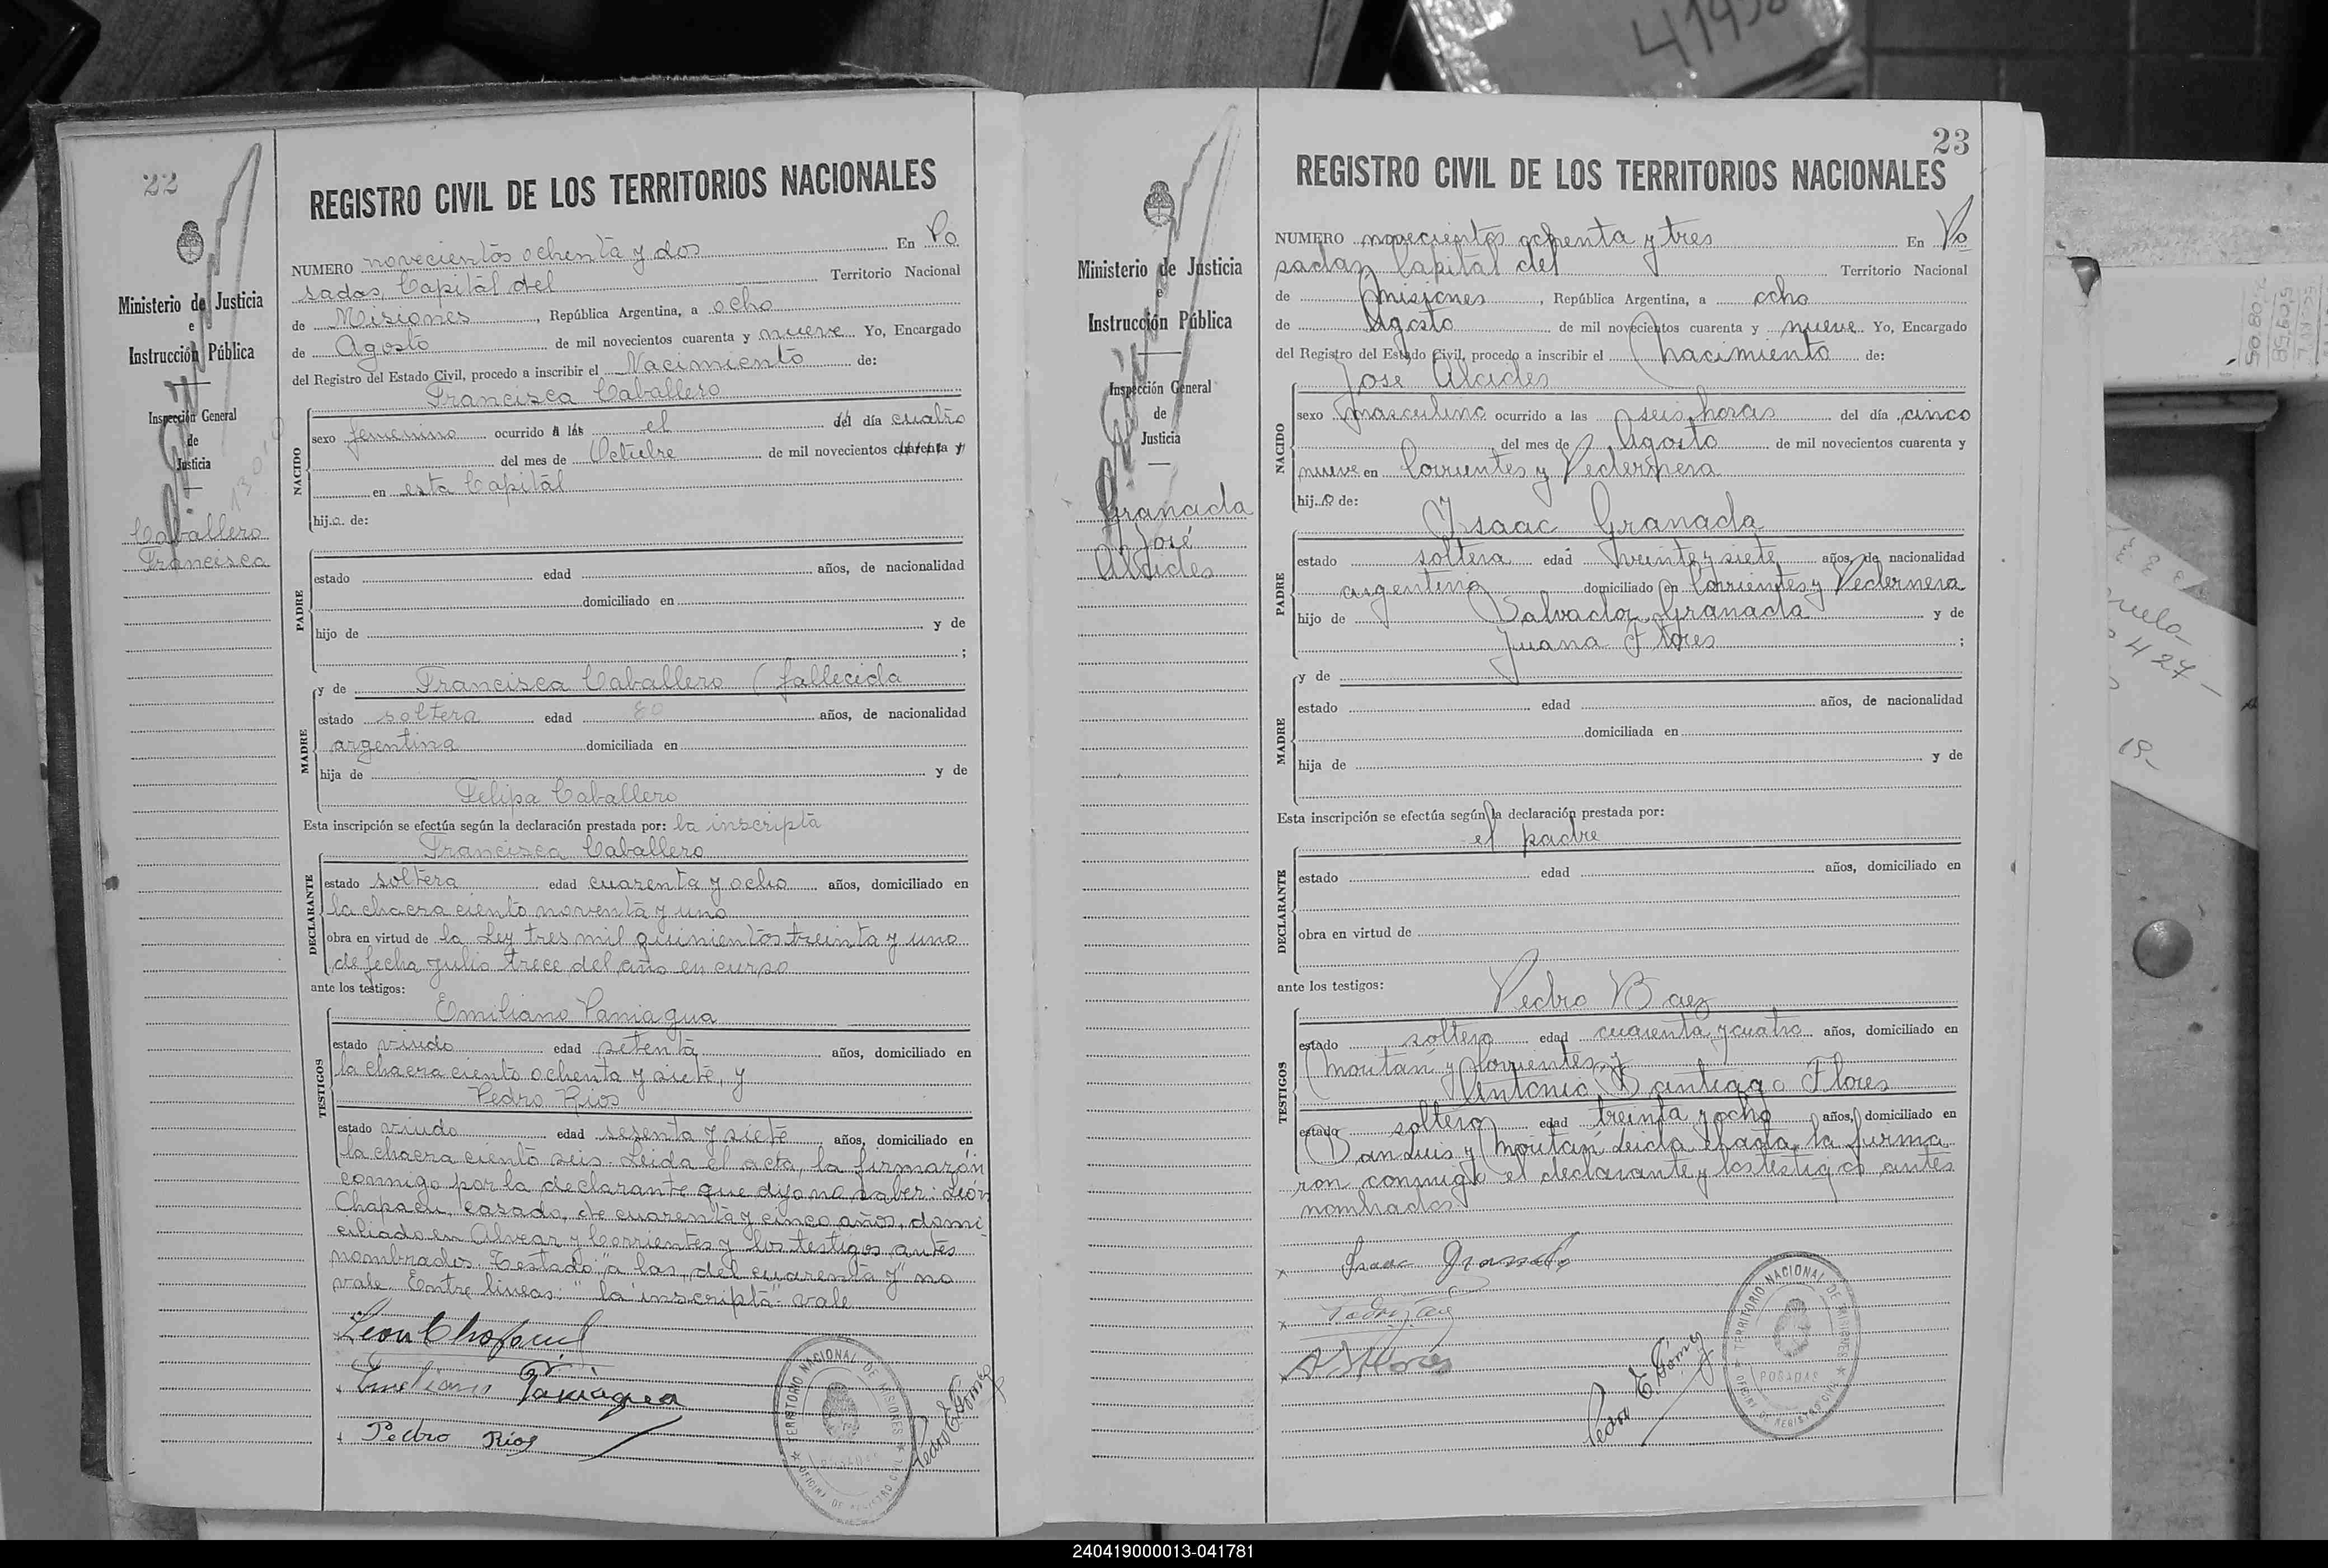 22
Ministerio de Justicia
e
Instrucción Pública
Inspección General
de
Justicia
Caballero
Francisca
REGISTRO CIVIL DE LOS TERRITORIOS NACIONALES
NUMERO novecientos ochenta y dos En Po
sadas, Capital del Territorio Nacional
de Misiones, República Argentina, a ocho
de Agosto de mil novecientos cuarenta y nueve Yo, Encargado
del Registro del Estado Civil, procedo a inscribir el Nacimiento de:
Francisca Caballero
NACIDO
sexo femenino ocurrido a las el del día cuatro
del mes de Octubre de mil novecientos cuarenta y
en esta Capital
hija de:
PADRE
estado edad años, de nacionalidad
domiciliado en
hijo de y de
;
MADRE
y de Francisca Caballero (fallecida
estado soltera edad 80 años, de nacionalidad
argentina domiciliada en
hija de y de
Felipa Caballero
Esta inscripción se efectúa según la declaración prestada por: la inscripta
Francisca Caballero
DECLARANTE
estado soltera edad cuarenta y ocho años, domiciliado en
la chacra ciento noventa y uno
obra en virtud de la Ley tres mil quinientos treinta y uno
de fecha julio trece del año en curso
ante los testigos:
Emiliano Paniagua
TESTIGOS
estado viudo edad setenta años, domiciliado en
la chacra ciento ochenta y siete, y
Pedro Rios
estado viudo edad sesenta y siete años, domiciliado en
la chacra ciento seis. Leida el acta, la firmarón
conmigo por la declarante que dijo no saber: León
Chapacu, casado, de cuarenta y cinco años, domi-
ciliado en Alvear y Corrientes y los testigos antes
nombrados. Testado: "a las, del cuarenta y" no
vale. Entre lineas: "la inscripta" vale
Emiliano Paniagua
Pedro Rios
TERRITORIO NACIONAL DE MISIONES
POSADAS
OFICINA DE REGISTRO CIVIL
Pedro E. Gomez
23
Ministerio de Justicia
e
Instrucción Pública
Inspección General
de
Justicia
Granada
José
Alcides
REGISTRO CIVIL DE LOS TERRITORIOS NACIONALES
NUMERO novecientos ochenta y tres En Po
sadas, Capital del Territorio Nacional
de Misiones, República Argentina, a ocho
de Agosto de mil novecientos cuarenta y nueve Yo, Encargado
del Registro del Estado Civil, procedo a inscribir el nacimiento de:
José Alcides
NACIDO
sexo masculino ocurrido a las seis horas del día cinco
del mes de Agosto de mil novecientos cuarenta y
nueve en Corrientes y Pedernera
hijo de:
PADRE
Isaac Granada
estado soltera edad veinte y siete años, de nacionalidad
argentina domiciliado en Corrientes y Pedernera
hijo de Salvador Granada y de
Juana Flores ;
MADRE
y de
estado edad años, de nacionalidad
domiciliada en
hija de y de
Esta inscripción se efectúa según la declaración prestada por:
el padre
DECLARANTE
estado edad años, domiciliado en
obra en virtud de
ante los testigos:
Pedro Baez
TESTIGOS
estado soltero edad cuarenta y cuatro años, domiciliado en
Moritán y Corrientes, y
Antonio Santiago Flores
estado soltero edad treinta y ocho años, domiciliado en
San Luis y Moritán. Leida el acta, la firma
ron conmigo el declarante y los testigos antes
nombrados.
Isaac Granada
TERRITORIO NACIONAL DE MISIONES
POSADAS
OFICINA DE REGISTRO CIVIL
Pedro E. Gomez
240419000013-041781